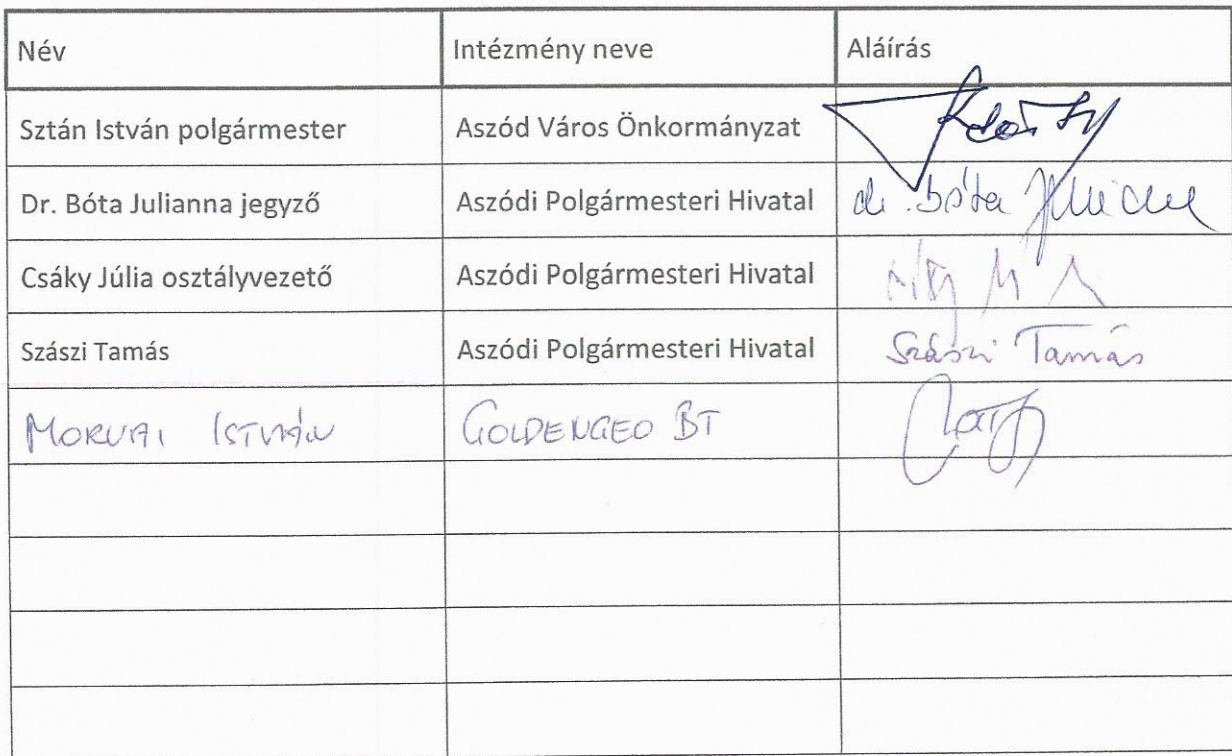 Név Intézmény neve Aláírás
Sztán István polgármester Aszód Város Önkormányzat
Dr. Bóta Julianna jegyző Aszódi Polgármesteri Hivatal dr. Bóta
Csáky Júlia osztályvezető Aszódi Polgármesteri Hivatal
Szászi Tamás Aszódi Polgármesteri Hivatal Szászi Tamás
MORVAI ISTVÁN GOLDENGEO BT